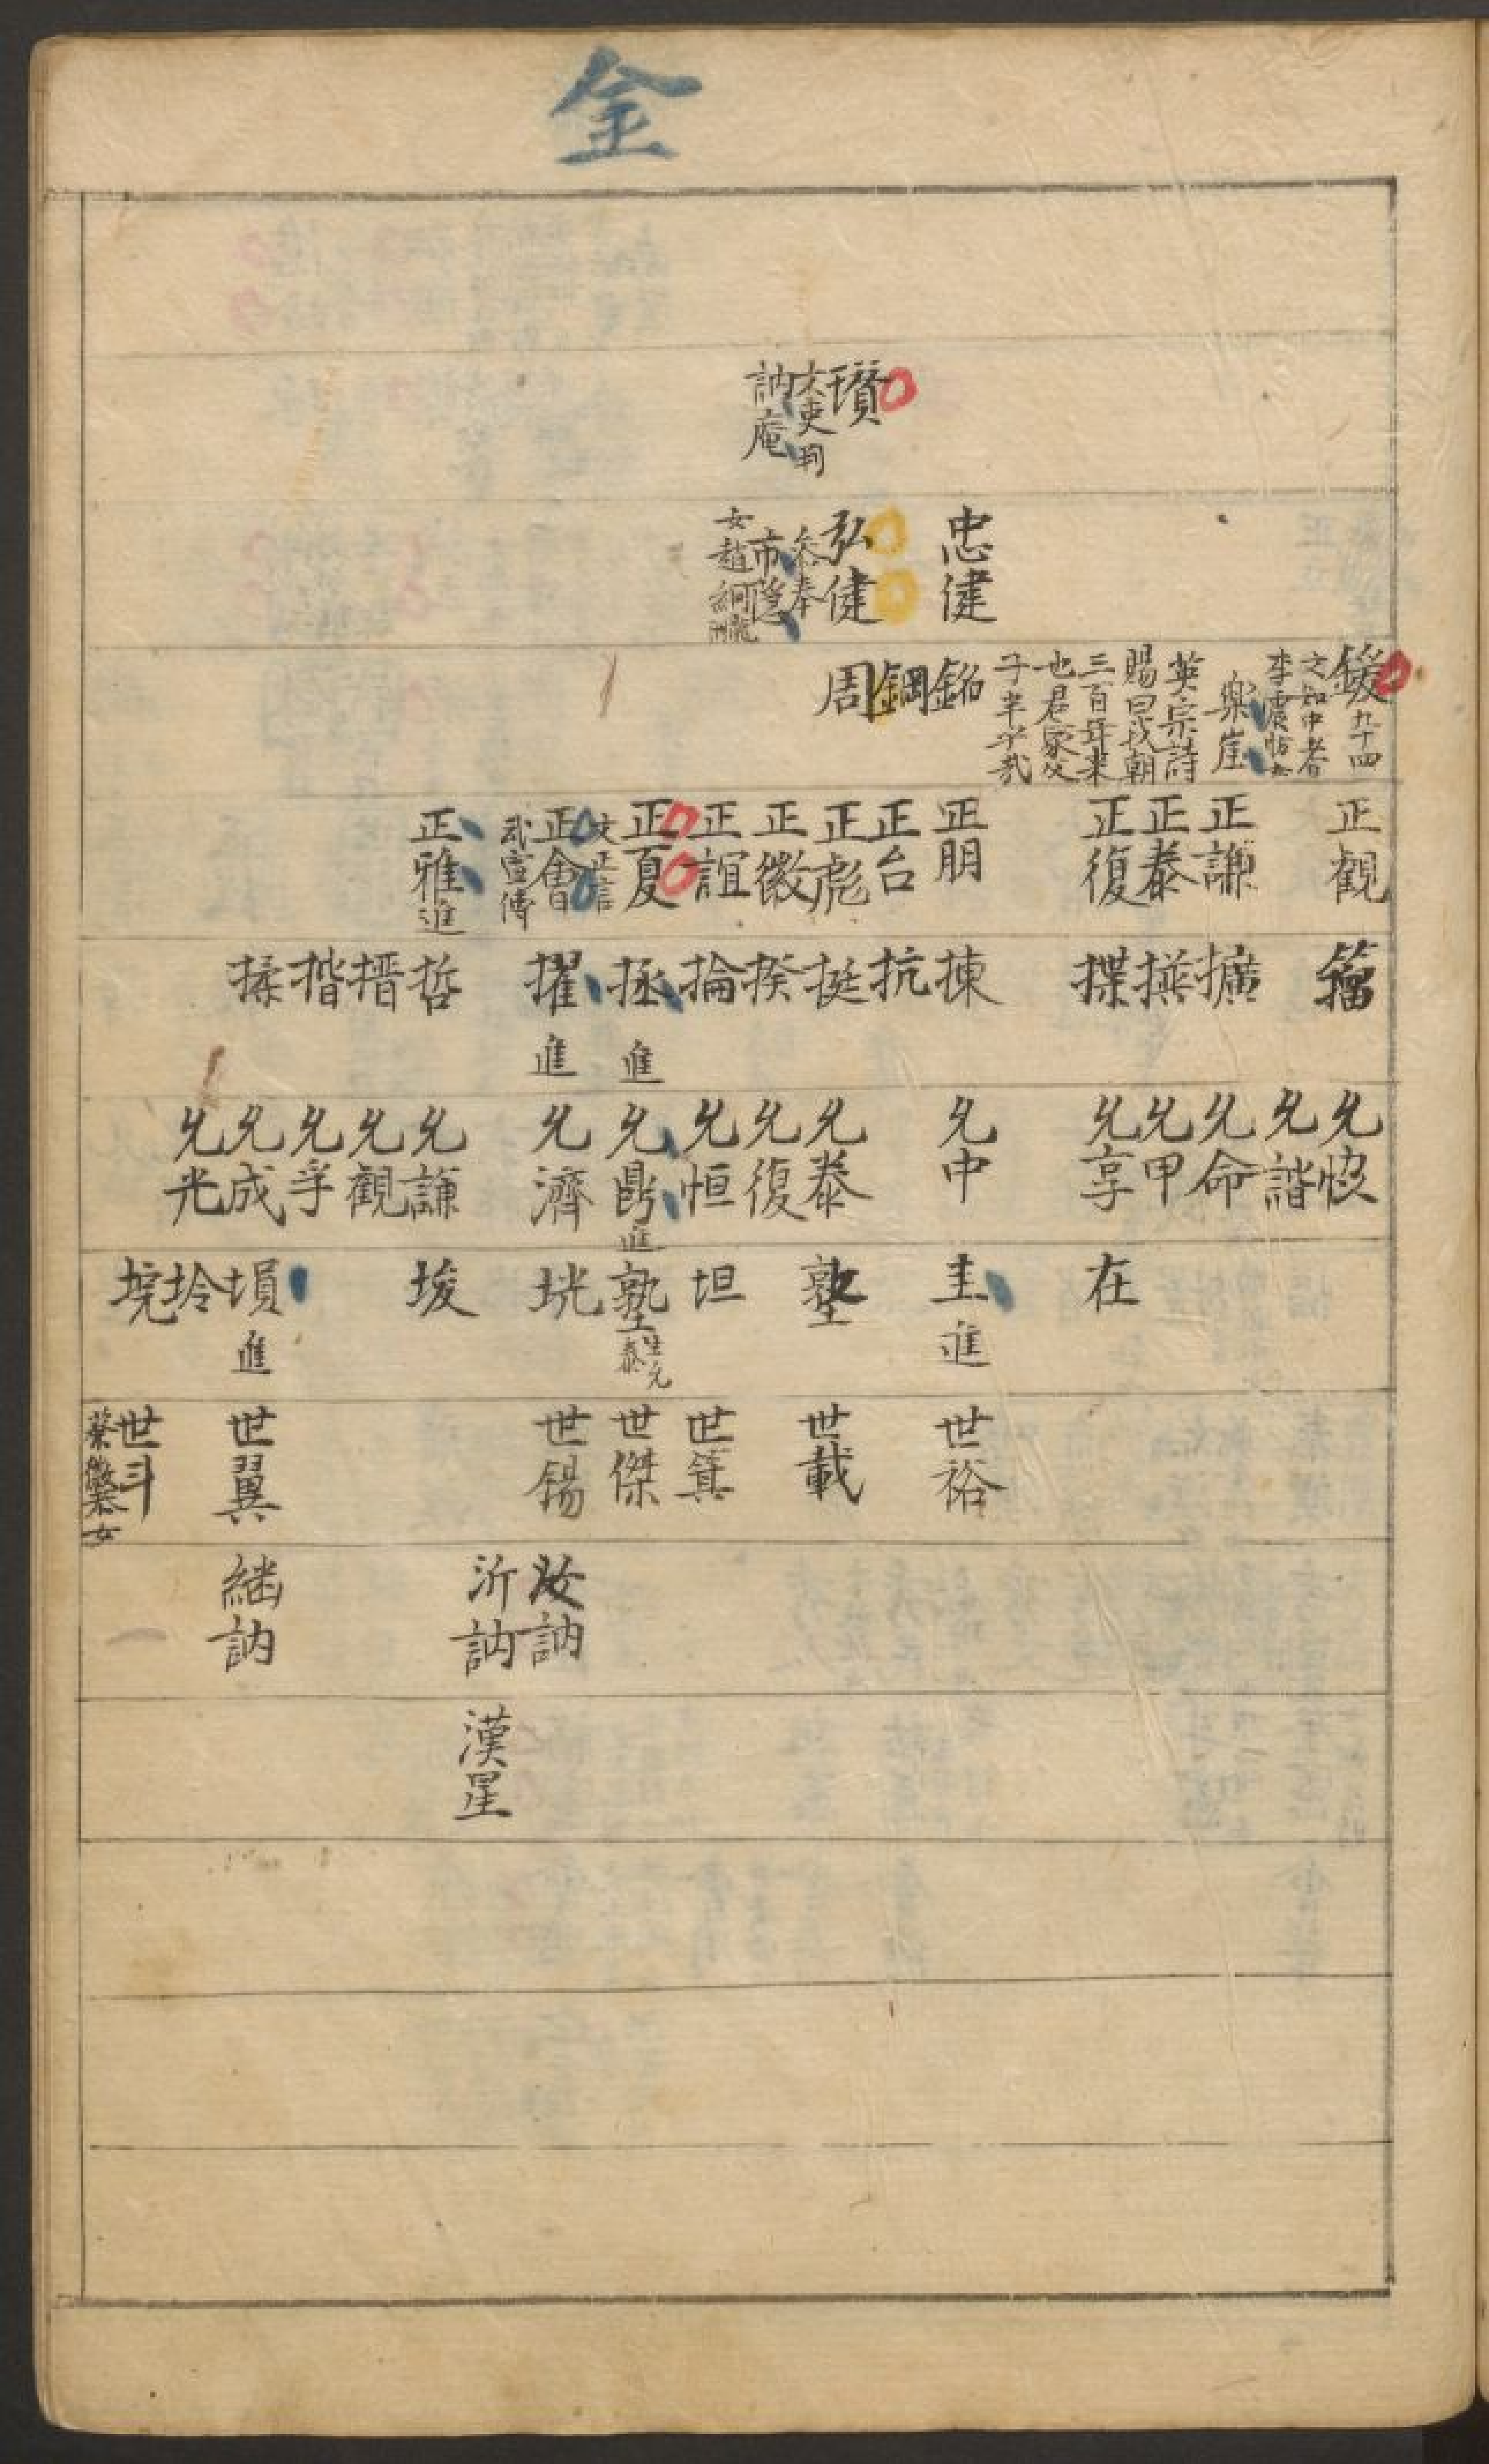 金
瓚
文吏判
訥庵
忠健
弘健
叅奉
市隱
女趙絅龍洲
鍰 九十四
文知中耆
樂崖
英宗詩
賜曰我朝
三百年来
也君家父
子半乎哉
銘
鋼
周
正觀
正謙
正泰
正復
正朋
正台
正彪
正徵
正誼
正夏
文正言
正會
武宣傳
正雅 進
籀
擴
撫
揲
揀
抗
挺
揆
掄
拯 進
擢 進
哲
搢
揩
揉
允恢
允諧
允命
允甲
允享
允中
允泰
允復
允恒
允鼎 進
允濟
允謙
允觀
允孚
允成
允光
在
圭 進
塾
坦
塾 生允泰
垙
埈
塤 進
坽
垸
世裕
世載
世箕
世傑
世錫
世翼
世斗
蔡徵纂女
汝訥
沂訥
継訥
漢星